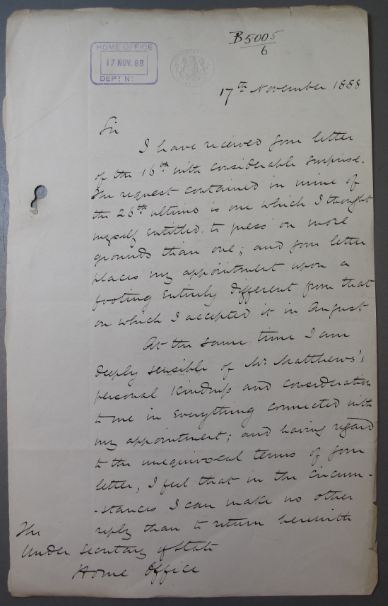 B5005
6
HOME OFFICE
17 NOV. 88
DEPT No
17th November 1888
Sir
I have received your letter
of the 16th with considerable surprise.
The request contained in mine of
the 26th ultimo is one which I thought
myself entitled to press on more
grounds than one; and your letter
places my appointment upon a
footing entirely different from that
on which I accepted it in August
At the same time I am
deeply sensible of Mr Matthews's
personal kindness and consideration
to me in everything connected with
my appointment; and having regard
to the unequivocal terms of your
letter, I feel that in the circum-
-stances I can make no other
reply than to return herewith
The
Under Secretary of State
Home Office